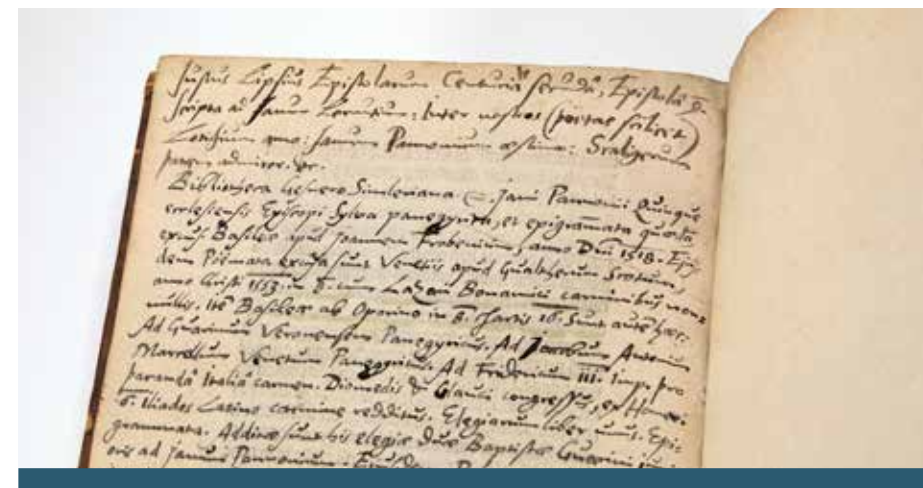 Justus Lipsius Epistolarum Centuria secunda, Epistola
scripta ad Janum Lernutium: Inter nostros (poetas scilicet)
Janum Pannonium æstimo: Scaligerum
admiror.
Bibliotheca Gesnero Simleriana. Jani Pannonii Quinque
ecclesiensis Episcopi Sylva panegyrica, et epigrammata quædā
excus. Basileæ apud Joannem Frobenium, anno Dñi 1518. Ejus
dem Poëmata excusa sunt Venetiis apud Gualtherum Scotum,
anno Christi 1553. in 8. cum Lazari Bonamici carminibus non
nullis. Itē Basileæ ab Oporino in 8. chartis 16. Sunt autē hæc.
Ad Guarinum Veronensem Panegyricus. Ad Jacobum Antonium
Marcellum Venetum Panegyricus. Ad Fredericum III. Imp. pro
paranda Italia carmen. Diomedis & Glauci congressus, ex Homeri
6. Iliados Latino carmine redditus. Elegiarum liber unus. Epi-
grammata. Additæ sunt his elegiæ duæ Baptistæ Guarini
ad Janum Pannonium.